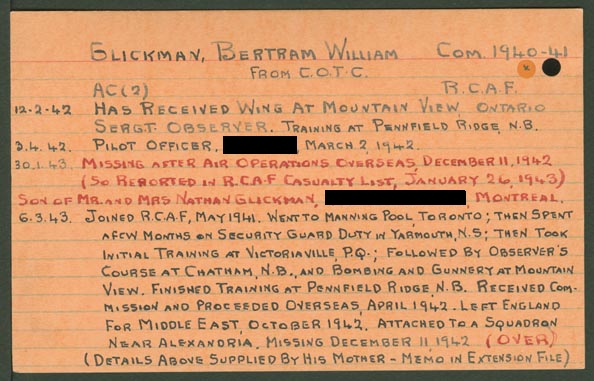 GLICKMAN, BERTRAM WILLIAM COM. 1940-41
FROM C.O.T.C.
AC(2) R.C.A.F.
12-2-42 HAS RECEIVED WING AT MOUNTAIN VIEW, ONTARIO
SERGT. OBSERVER. TRAINING AT PENNFIELD RIDGE, N.B.
3.4.42. PILOT OFFICER, , MARCH 2, 1942.
30.1.43. MISSING AFTER AIR OPERATIONS OVERSEAS DECEMBER 11, 1942
(SO REPORTED IN R.C.A.F CASUALTY LIST, JANUARY 26, 1943)
SON OF MR. AND MRS NATHAN GLICKMAN, , MONTREAL.
6.3.43. JOINED R.C.A.F, MAY 1941. WENT TO MANNING POOL, TORONTO; THEN SPENT
A FEW MONTHS ON SECURITY GUARD DUTY IN YARMOUTH, N.S; THEN TOOK
INITIAL TRAINING AT VICTORIAVILLE, P.Q.; FOLLOWED BY OBSERVER'S
COURSE AT CHATHAM, N.B., AND BOMBING AND GUNNERY AT MOUNTAIN
VIEW. FINISHED TRAINING AT PENNFIELD RIDGE, N.B. RECEIVED COM-
MISSION AND PROCEEDED OVERSEAS, APRIL 1942. LEFT ENGLAND
FOR MIDDLE EAST, OCTOBER 1942. ATTACHED TO A SQUADRON
NEAR ALEXANDRIA. MISSING DECEMBER 11, 1942 (OVER)
(DETAILS ABOVE SUPPLIED BY HIS MOTHER - MEMO IN EXTENSION FILE)